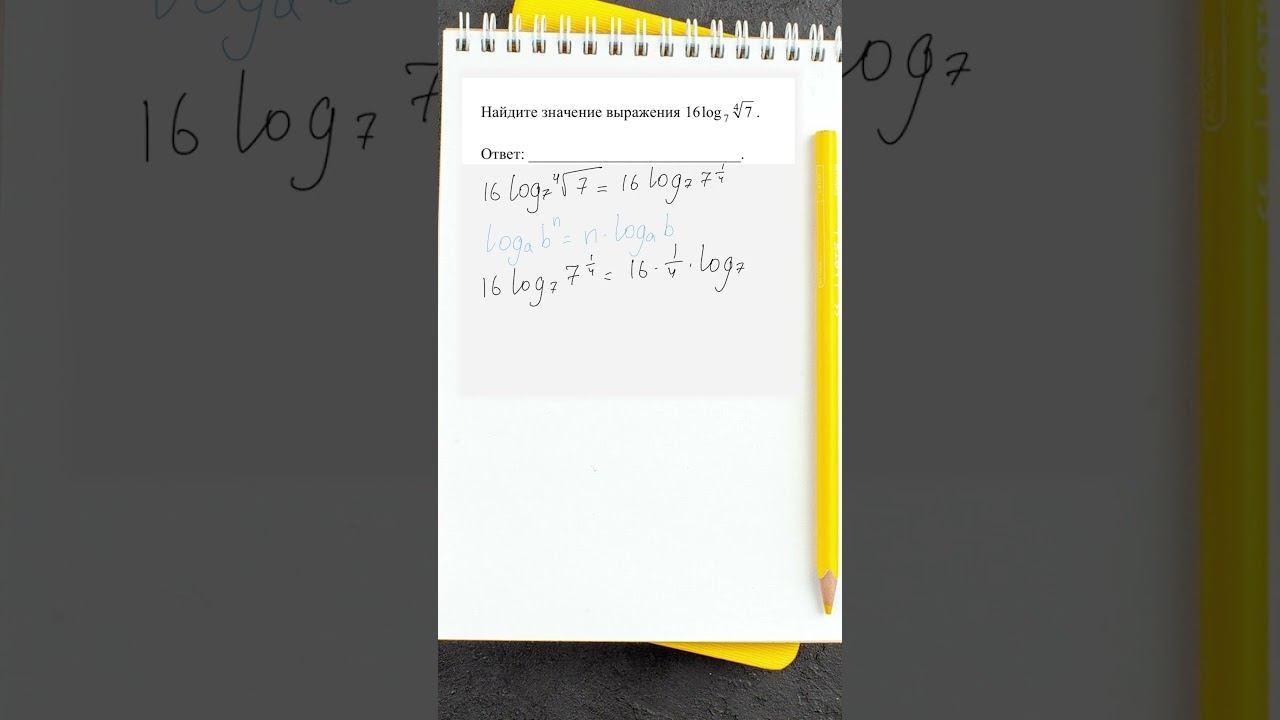 Найдите значение выражения 16log₇ ∜7 .
Ответ: ___________________________.
16 log₇ ∜7 = 16 log₇ 7^(1/4)
logₐ bⁿ = n · logₐ b
16 log₇ 7^(1/4) = 16 · 1/4 · log₇